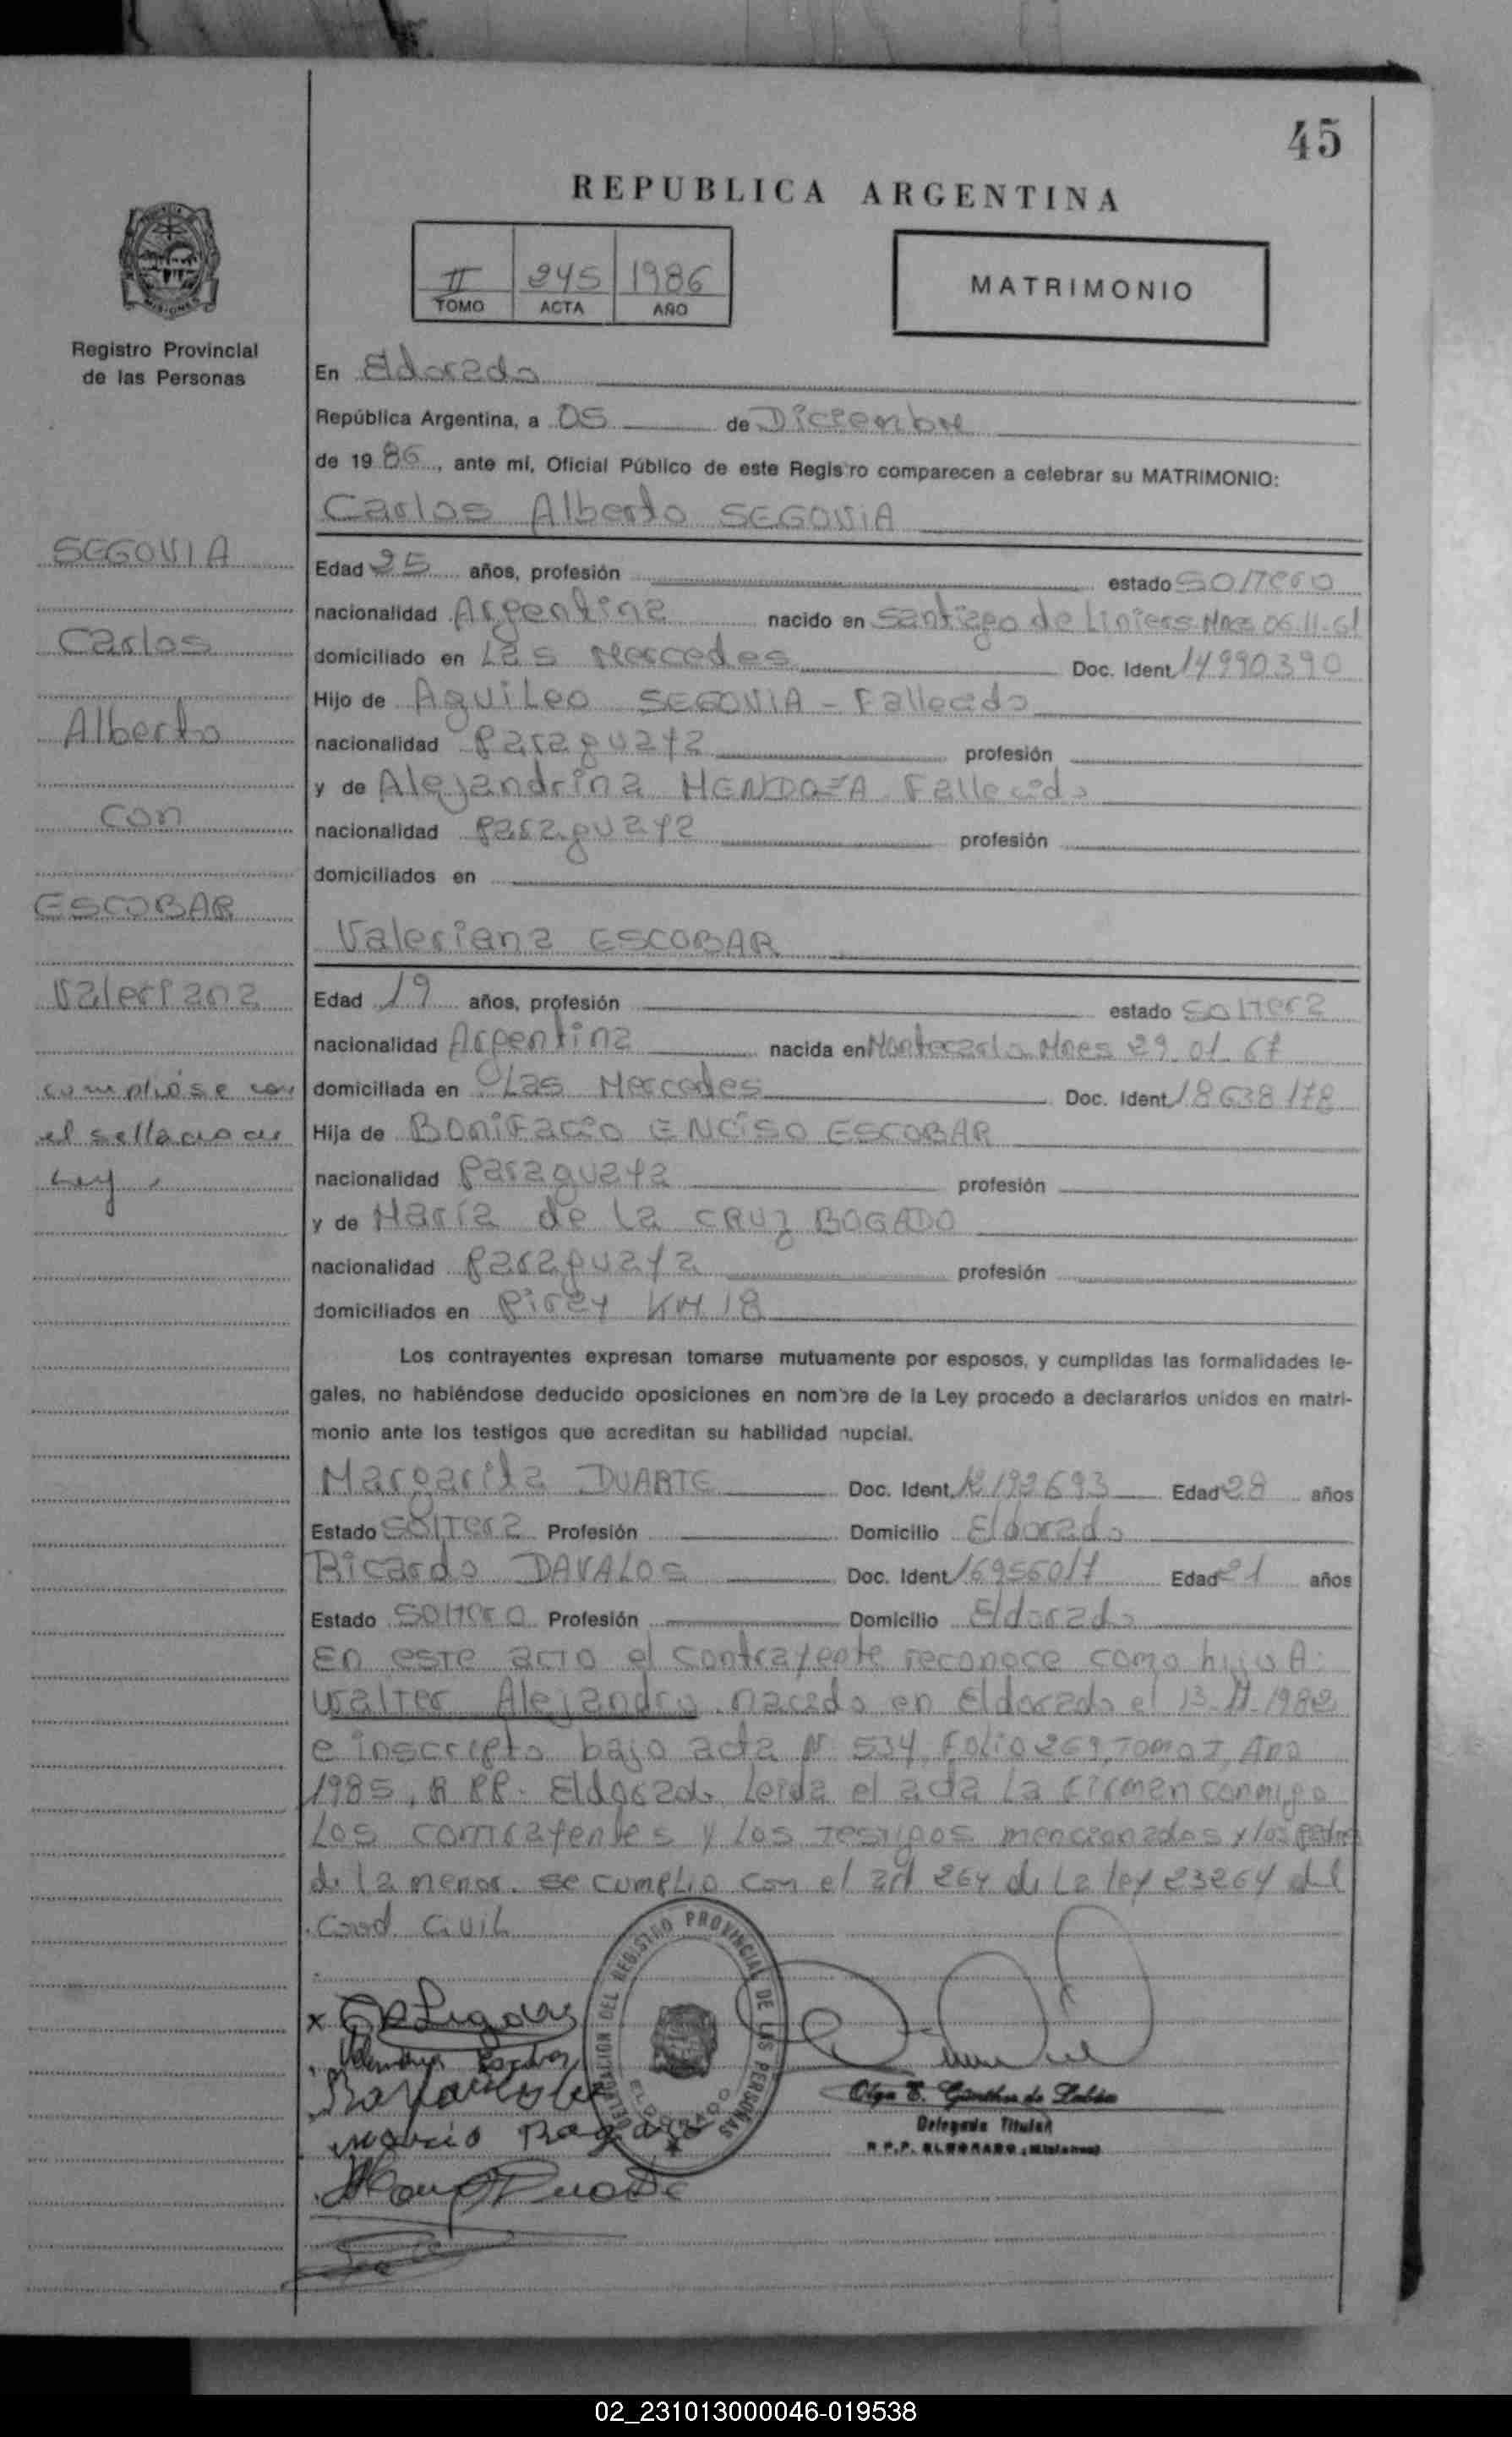 45
REPUBLICA ARGENTINA
II 245 1986
TOMO ACTA AÑO
MATRIMONIO
MISIONES
Registro Provincial
de las Personas
En Eldorado
República Argentina, a 05 de Diciembre
de 1986, ante mí, Oficial Público de este Registro comparecen a celebrar su MATRIMONIO:
Carlos Alberto SEGOVIA
SEGOVIA
Carlos
Alberto
con
ESCOBAR
Valeriana
cumpliose con
el sellado de
Ley.
Edad 25 años, profesión estado SOlTero
nacionalidad Argentina nacido en Santiago de Liniers Mnes 06.11-61
domiciliado en Las Mercedes Doc. Ident. 14990390
Hijo de Aquileo SEGOVIA - Fallecido
nacionalidad Paraguaya profesión
y de Alejandrina MENDOZA Fallecida
nacionalidad Paraguaya profesión
domiciliados en
Valeriana ESCOBAR
Edad 19 años, profesión estado SOlTera
nacionalidad Argentina nacida en Montecarlo Mnes 29.01.67
domiciliada en Las Mercedes Doc. Ident. 18638178
Hija de Bonifacio ENCISO ESCOBAR
nacionalidad Paraguaya profesión
y de María de la CRUZ BOGADO
nacionalidad Paraguaya profesión
domiciliados en Piray KM 18
Los contrayentes expresan tomarse mutuamente por esposos, y cumplidas las formalidades le-
gales, no habiéndose deducido oposiciones en nombre de la Ley procedo a declararlos unidos en matri-
monio ante los testigos que acreditan su habilidad nupcial.
Margarita DUARTE Doc. Ident. 12192693 Edad 28 años
Estado SOlTera Profesión Domicilio Eldorado
Ricardo DAVALOS Doc. Ident. 16956017 Edad 21 años
Estado SOlTero Profesión Domicilio Eldorado
En este acto el contrayente reconoce como hijo A:
Walter Alejandro nacido en Eldorado el 13-11-1982
e inscripto bajo acta Nº 534, Folio 269, Tomo I, Año
1985, R PP. Eldorado Leida el acta La firmen conmigo
Los contrayentes y los Testigos mencionados y los padres
de la menor. se cumplio con el art 264 de La ley 23264 del
Cood. Civil
DELEGACION DEL REGISTRO PROVINCIAL DE LAS PERSONAS
ELDORADO
x Segovia
Valeriana Escobar
Bogado
Duarte
Olga E. Günther de
Delegada Titular
R.P.P. ELDORADO (Misiones)
02_231013000046-019538